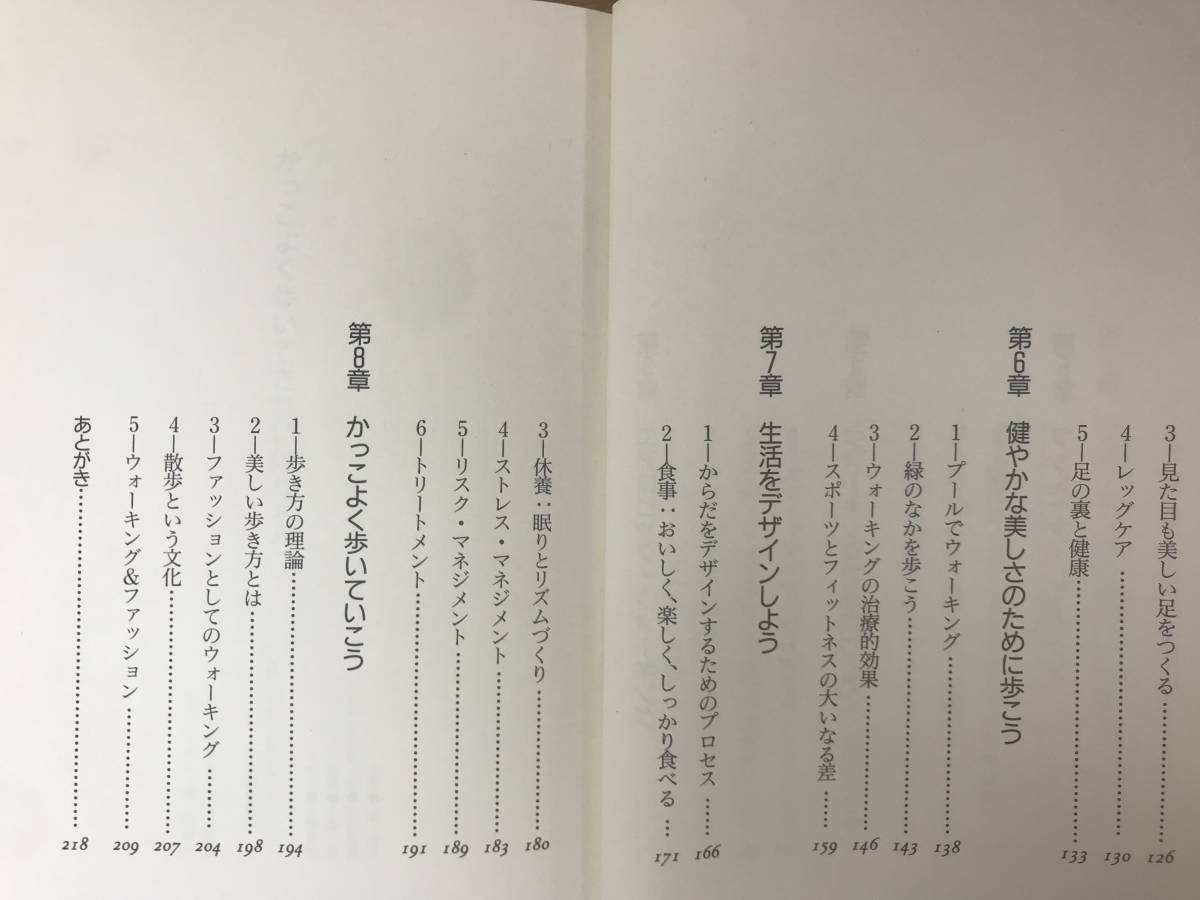 3—見た目も美しい足をつくる……………126
4—レッグケア……………130
5—足の裏と健康……………133
第6章 健やかな美しさのために歩こう
1—プールでウォーキング……………138
2—緑のなかを歩こう……………143
3—ウォーキングの治療的効果……………146
4—スポーツとフィットネスの大いなる差……159
第7章 生活をデザインしよう
1—からだをデザインするためのプロセス……166
2—食事：おいしく、楽しく、しっかり食べる…171
3—休養：眠りとリズムづくり……………180
4—ストレス・マネジメント……………183
5—リスク・マネジメント……………189
6—トリートメント……………191
第8章 かっこよく歩いていこう
1—歩き方の理論……………194
2—美しい歩き方とは……………198
3—ファッションとしてのウォーキング………204
4—散歩という文化……………207
5—ウォーキング&ファッション……………209
あとがき……………218